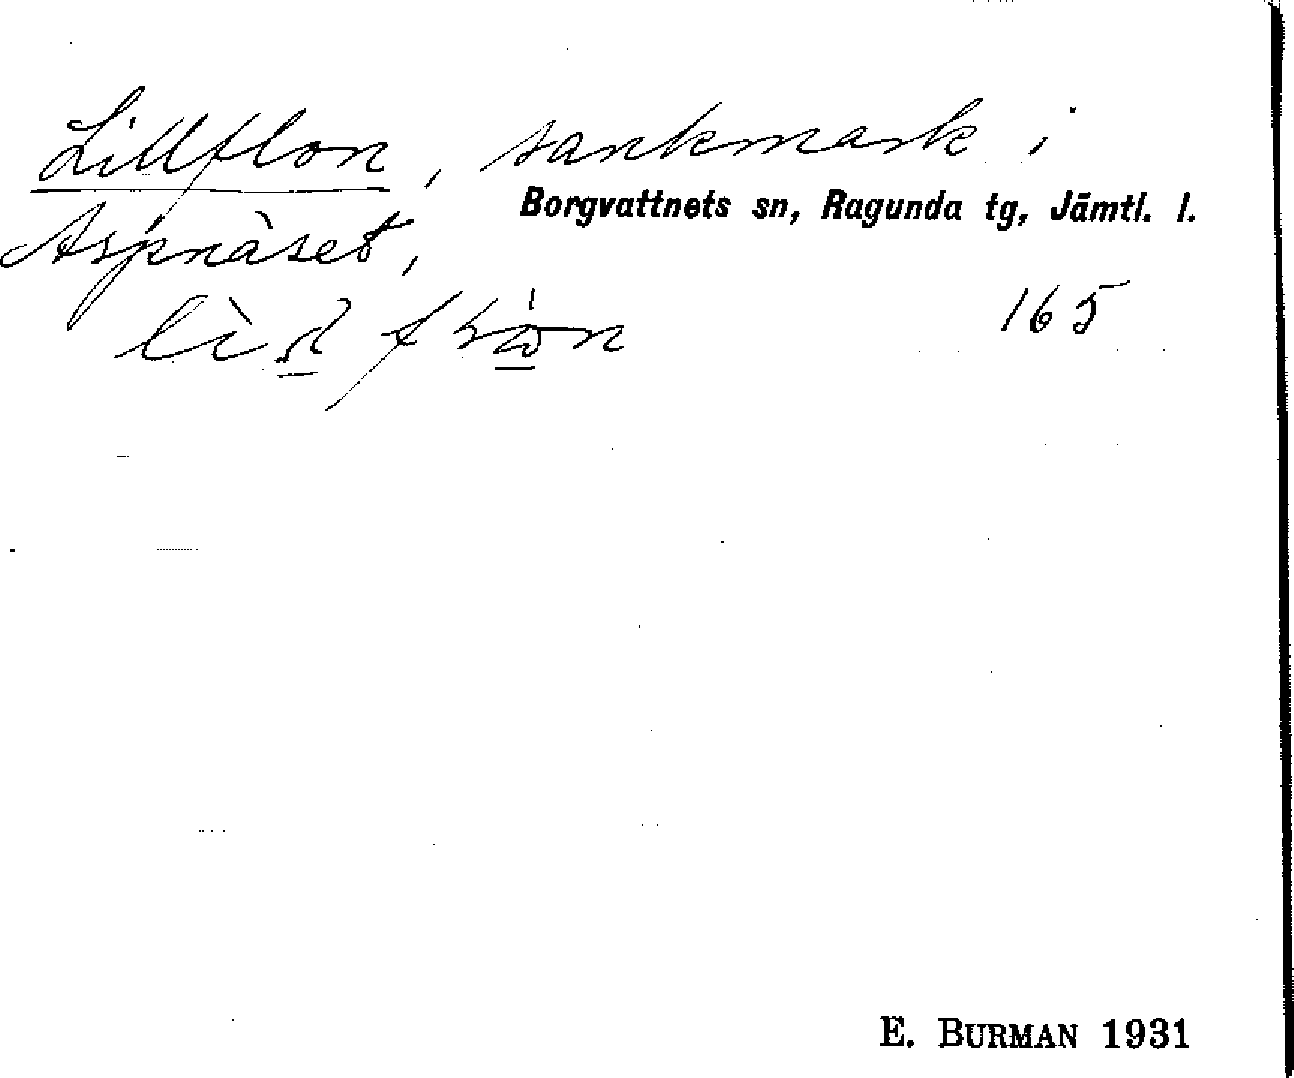 Lillflon, sankmark i
Borgvattnets sn, Ragunda tg, Jämtl. l.
Aspnäset,
165
E. BURMAN 1931